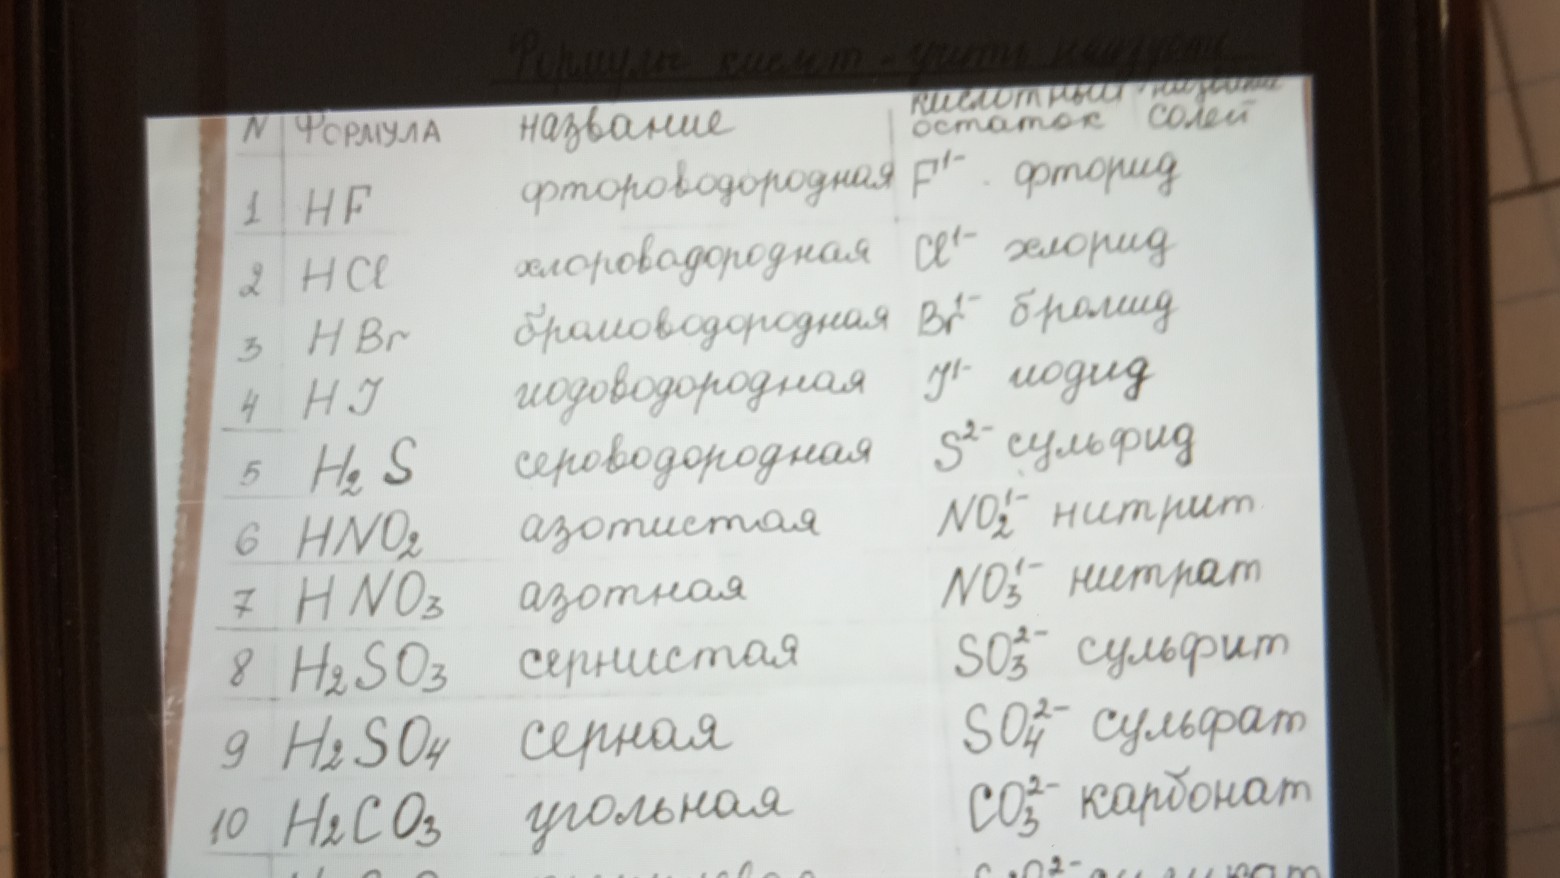 Формулы кислот - учить наизусть
N Формула название кислотный остаток название солей
1 HF фтороводородная F¹⁻ фторид
2 HCl хлороводородная Cl¹⁻ хлорид
3 HBr бромоводородная Br¹⁻ бромид
4 HJ иодоводородная J¹⁻ иодид
5 H₂S сероводородная S²⁻ сульфид
6 HNO₂ азотистая NO₂¹⁻ нитрит
7 HNO₃ азотная NO₃¹⁻ нитрат
8 H₂SO₃ сернистая SO₃²⁻ сульфит
9 H₂SO₄ серная SO₄²⁻ сульфат
10 H₂CO₃ угольная CO₃²⁻ карбонат